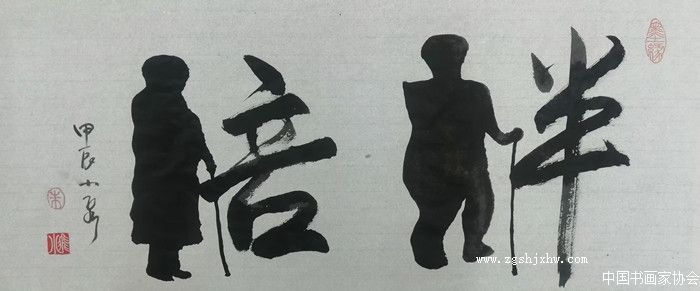 陪伴
甲辰小
www.zgshjxhw.com
中国书画家协会